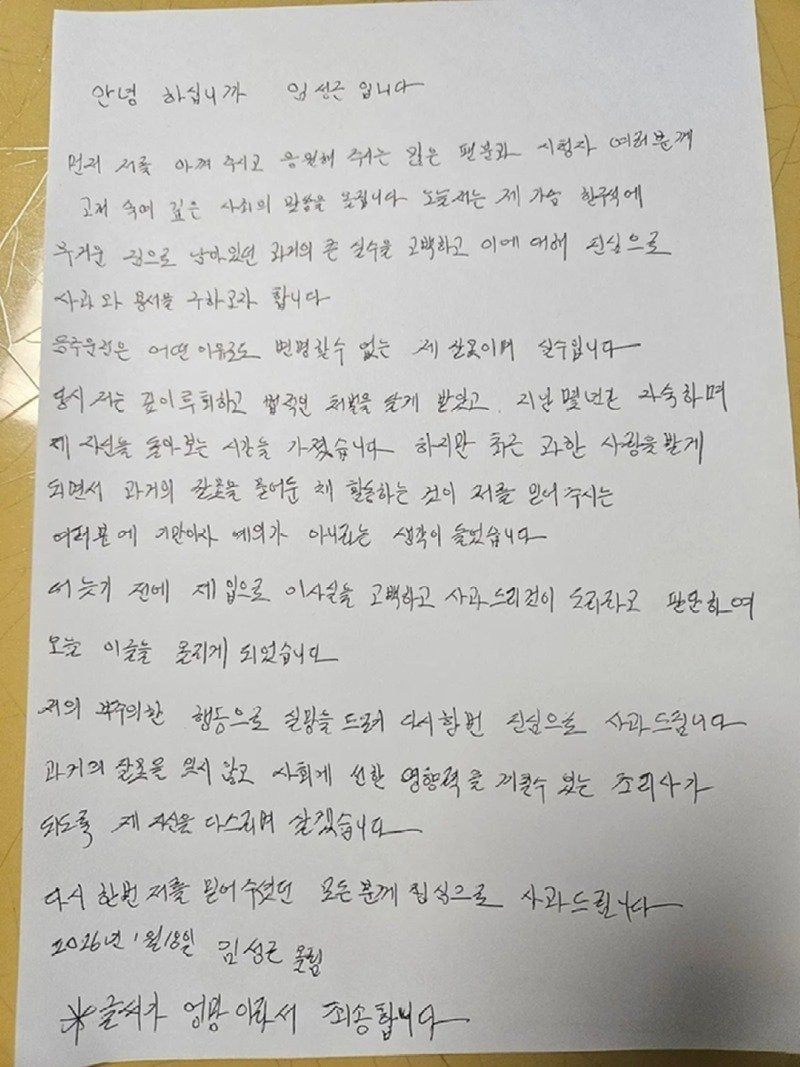 안녕 하십니까 임성근입니다
먼저 저를 아껴 주시고 응원해 주시는 많은 팬분과 시청자 여러분께
고개 숙여 깊은 사죄의 말씀을 올립니다 오늘 저는 제 가슴 한구석에
무거운 짐으로 남아있던 과거의 큰 실수를 고백하고 이에 대해 진심으로
사과와 용서를 구하고자 합니다
음주운전은 어떤 이유로도 변명할수 없는 제 잘못이며 실수입니다
당시 저는 깊이 뉘회하고 법적인 처벌을 달게 받았고, 지난 몇년간 자숙하며
제 자신을 돌아보는 시간을 가졌습니다 하지만 최근 과한 사랑을 받게
되면서 과거의 잘못을 묻어둔 채 활동하는 것이 저를 믿어 주시는
여러분에 기만이자 예의가 아니라는 생각이 들었습니다
더 늦기 전에 제 입으로 이사실을 고백하고 사과드리것이 도리라고 판단하여
오늘 이글을 올리게 되었습니다
저의 부주의한 행동으로 실망을 드려 다시한번 진심으로 사과드립니다
과거의 잘못을 잊지 않고 사회게 선한 영향력을 끼칠수 있는 조리사가
되도록 제 자신을 다스리며 살겠습니다
다시 한번 저를 믿어 주셨던 모든 분께 진심으로 사과드립니다
2026년 1월 18일 임성근 올림
※글씨가 엉망이라서 죄송합니다